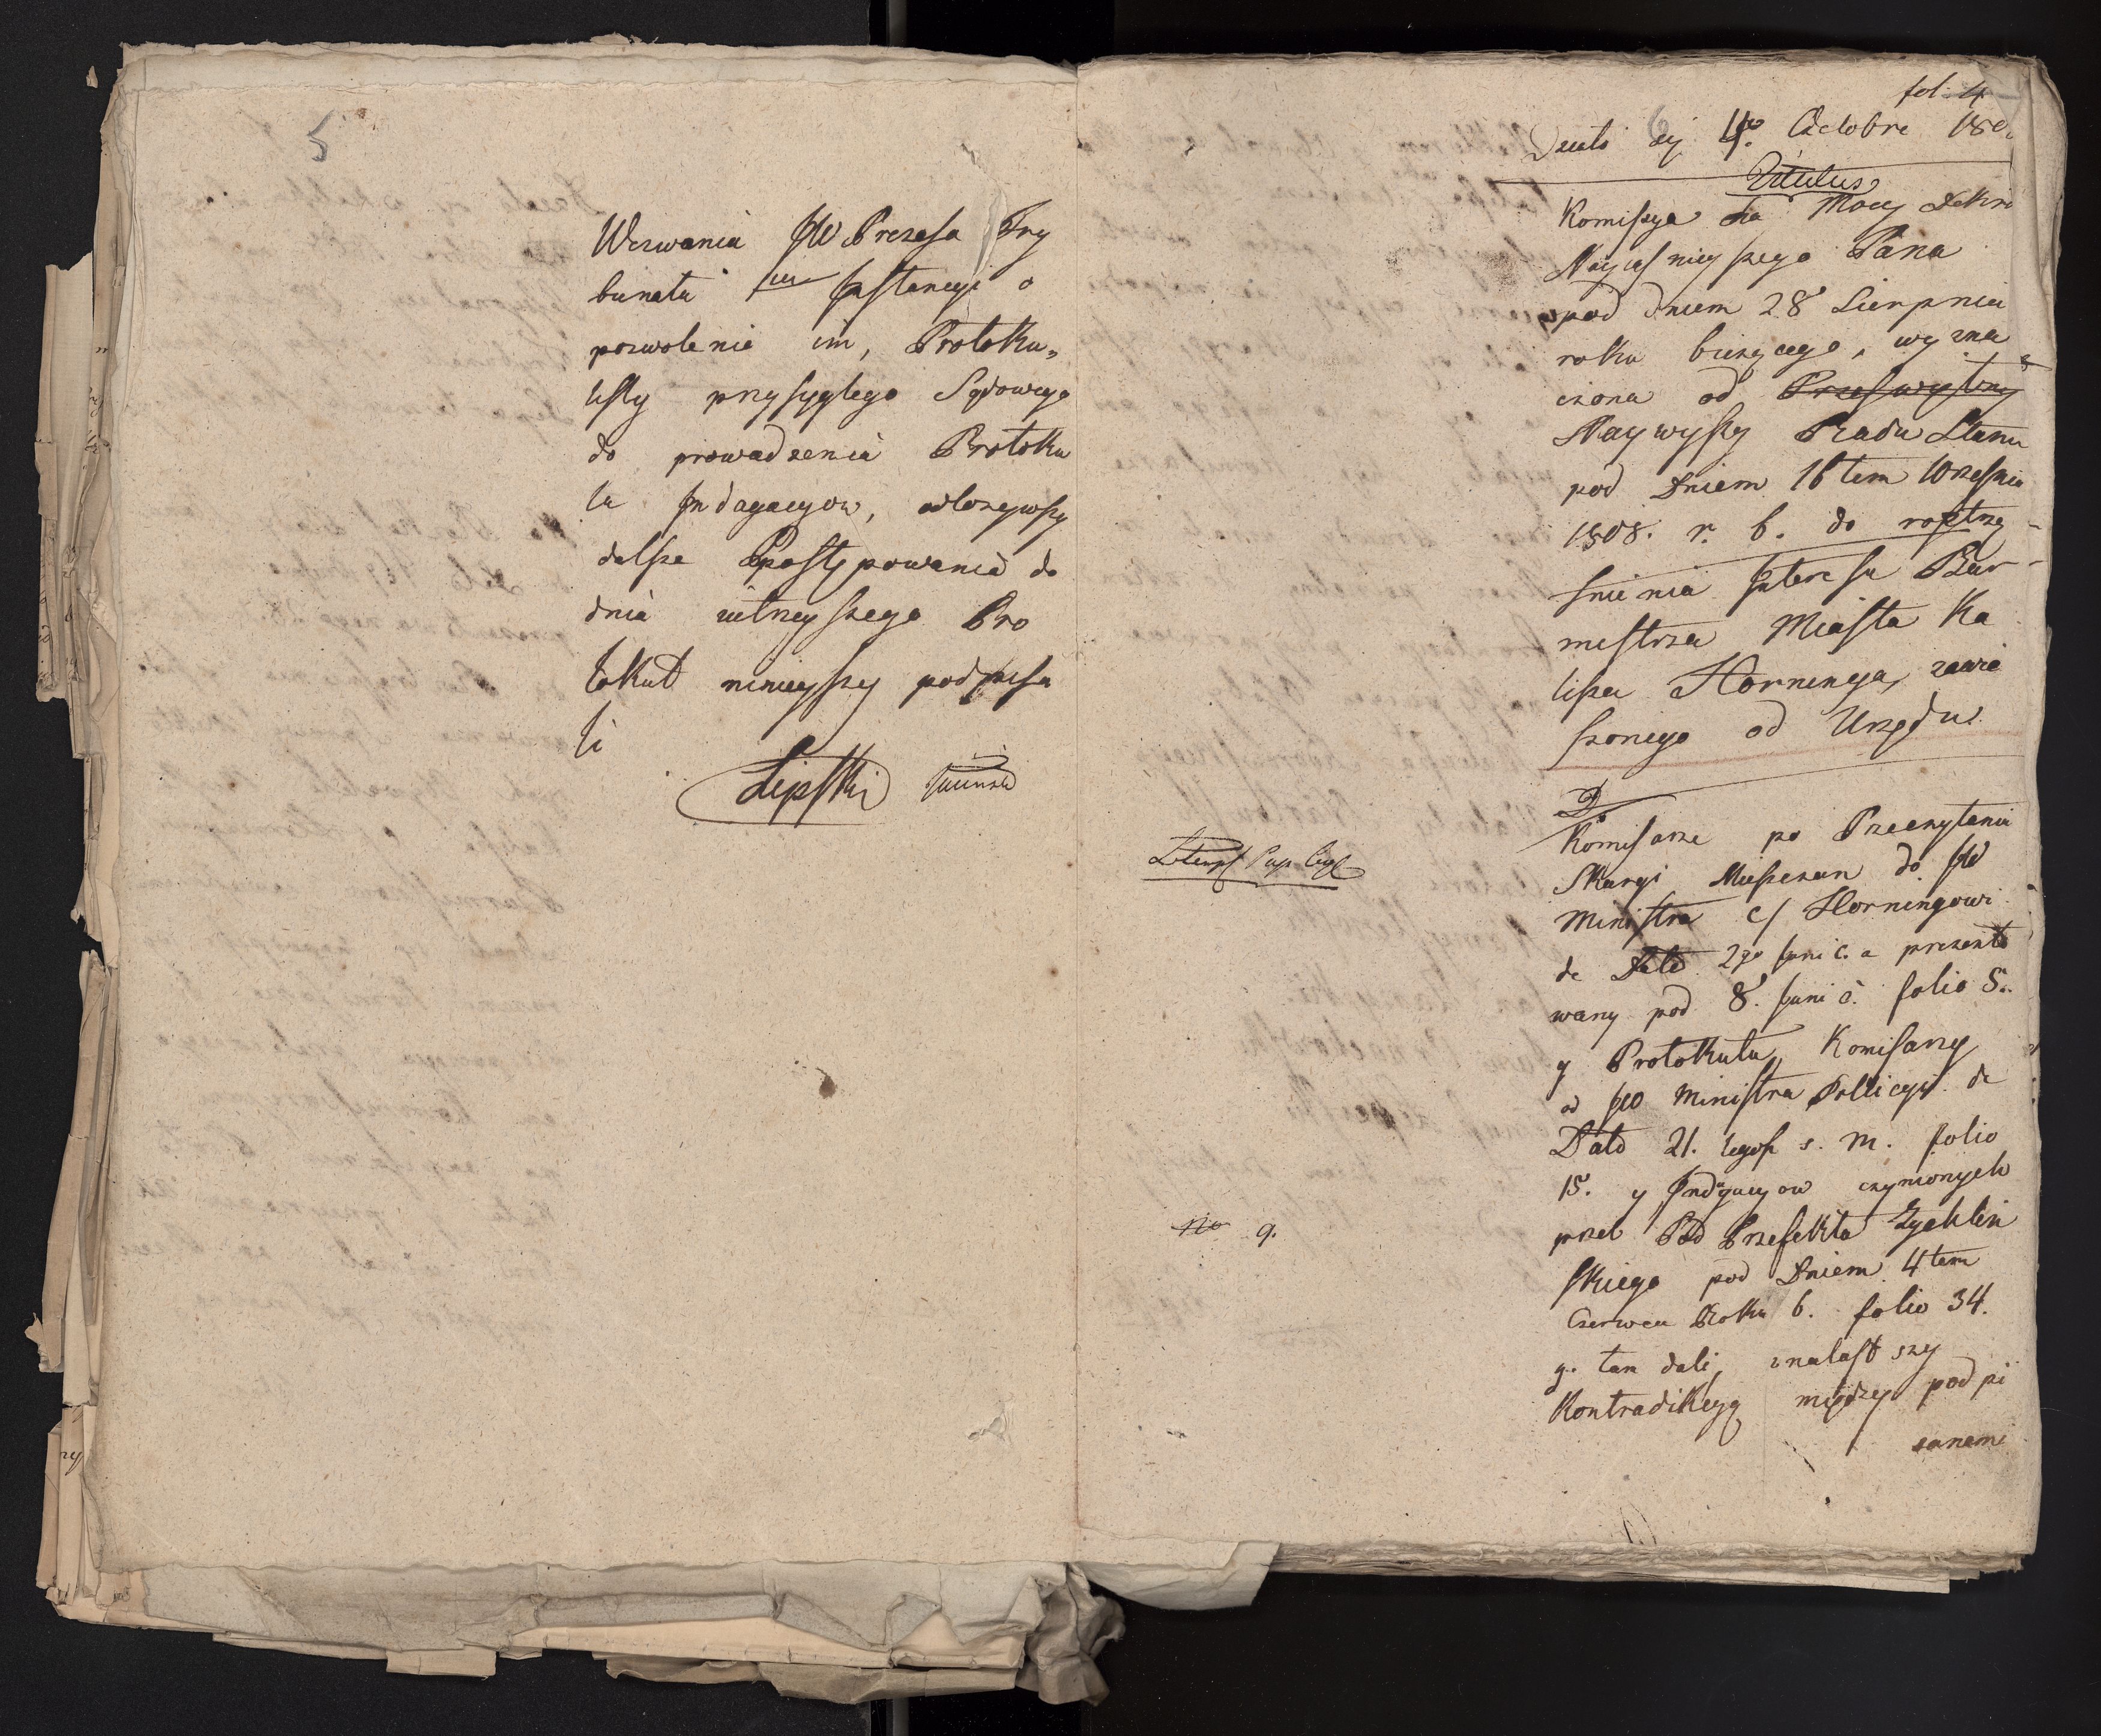 5
Wezwania JW Prezesa Try
bunału 1ey Jnstancyi o
pozwolenie im, Protoku„
listy przysięgłego Sądowego
do prowadzenia Protoku
łu Jndagacyow, odłożywszy
dalsze Postępowania do
dnia iutrzeyszego Pro
tokuł ninieyszy podpisa
li
Lipski
fol: 4
6
Octobra 180
Titulus
Komissya na Mocy Dekre
Nayiasnieyszego Pana
pod dniem 28 Sierpnia
roku bieżącego, wyzna
czona od Przeświętny
Naywyszy Radu Stanu
pod Dniem 16tem Wrzesnia
1808. r. b. do rostrzy-
snienia Jnteresu Bur-
mistrza Miasta Ka
lisza Horninga, zawie
szonego od Urzędu.
Komisarze po Przeczytaniu
Skargi Mieszczan do JW
Ministra c/ Horningowi
de Dato 2go Juni c. a prezento
wany pod 8. Juni c. folio 5.
y Protokułu, Komisarzy
od JW Ministra Policyi de
Dato 21. s. m. folio
15. y Jndagacyow czynionych
przez Pod Prefekta Zychlin
skiego pod Dniem 4tem
Czerwca Roku b. folio 34.
y. tam dali, znalaszszy
Kontradikcyą między podpi
sanemi
No 9.